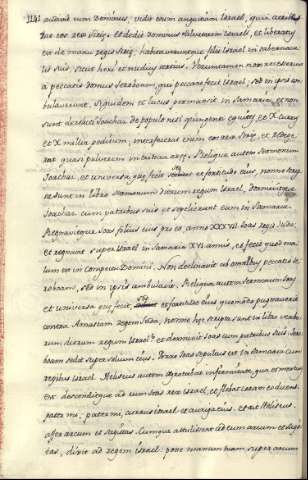 audivit eum Dominus, vidit enim angustiam Israel, quia
rex Syrię, et dedit Dominus salvatorem Israeli, et liberatus
est de manu regis Syrię, habitaveruntque filii Israel in tabernacu-
lis suis, sicut heri et nudius tertius. Verumtamen non recesserunt
a peccatis domus Jeroboam, qui peccare fecit Israel, sed in ipsis am-
bulaverunt. Siquidem et lucus permansit in Samaria, et non
sunt derelicti Joachaz de populo nisi quinquaginta equites, et X currus
et X millia peditum, interfecerat enim eos rex Syrię, et redege-
rat quasi pulverem in tritura areę. Reliqua autem sermonum
Joachaz, et universa, quę fecit, et fortitudo eius, nonne hęc
scripta sunt in libro sermonum dierum regum Israel, dormivitque
Joachaz cum patribus suis et sepelierunt eum in Samaria
Regnavitque Joas filius eius pro eo, anno XXXVII Joas regis Juda,
et regnavit super Israel in Samaria XVI annis, et fecit quod ma-
lum est in conspectu Domini. Non declinavit ab omnibus peccatis Je-
roboam, sed in ipsis ambulavit. Reliqua autem sermonum Joas
et universa quę fecit, et fortitudo eius quomodo pugnaverit
contra Amasiam regem Juda, nonne hęc scripta sunt in libro verbo-
rum dierum regum Israel? et dormivit Joas cum patribus suis. Jero-
boam sedit super solium eius. Porro Joas sepultus est in Samaria cum
regibus Israel. Heliseus autem ęgrotabat infirmitate, qua et mortuus
est descenditque ad eum Joas rex Israel, et flebat coram eo dicens:
pater mi, pater mi, currus Israel et auriga eius. et ait Heliseus.
affer arcum et sagittas. Cumque attulisset ad eum arcum et sagit-
tas, dixit ad regem Israel: pone manum tuam super arcum